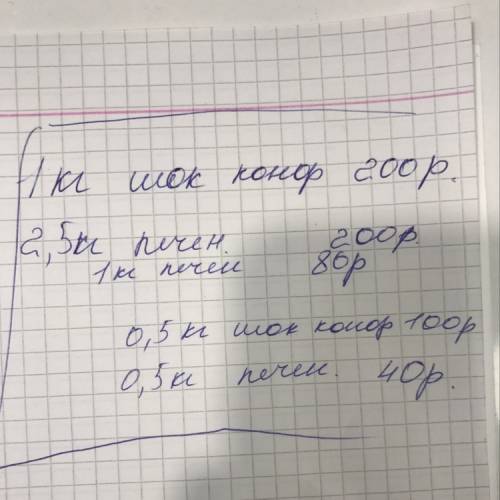 1 кг шок конф 200р.
2,5кг печен. 200р
1кг печен 80р
0,5кг шок конф 100р
0,5кг печен. 40р.